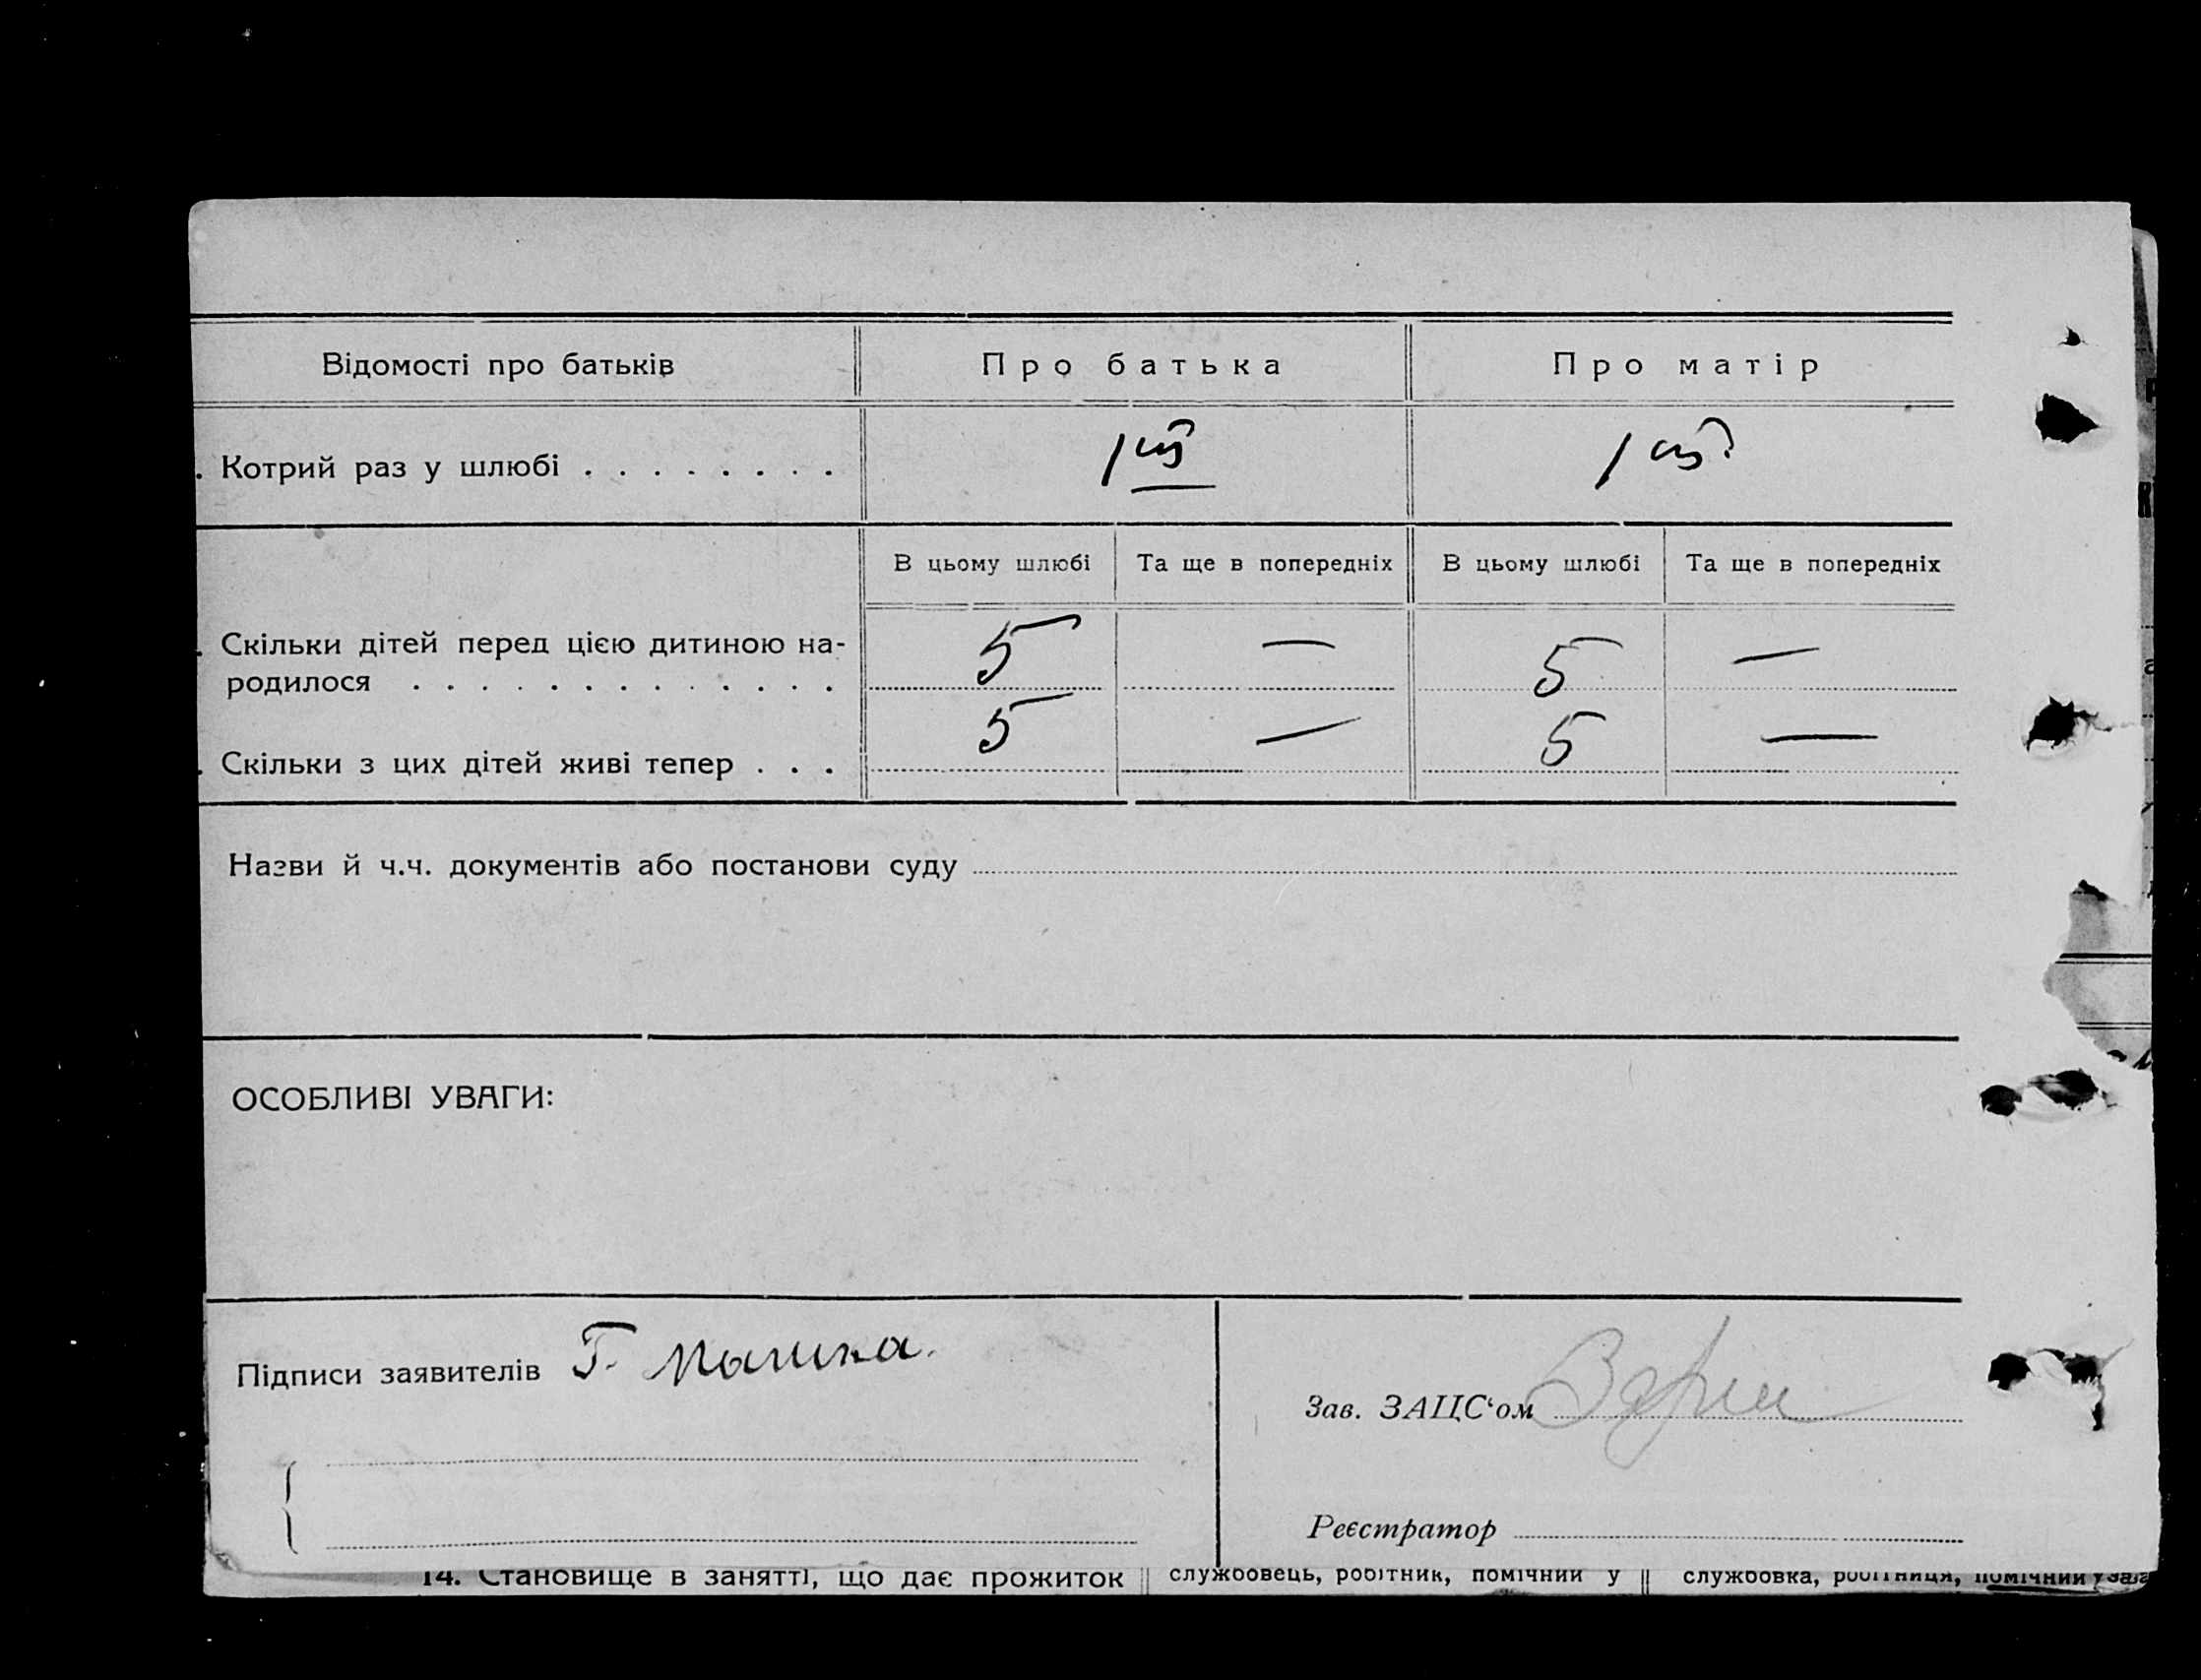 Відомості про батьків Про батька Про матір
. Котрий раз у шлюбі . . . . . . . .
В цьому шлюбі Та ще в попередніх В цьому шлюбі Та ще в попередніх
. Скільки дітей перед цією дитиною на- 5 — 5 —
родилося . . . . . . . . . . . . .
. Скільки з цих дітей живі тепер . . . 5 — 5 —
Назви й ч.ч. документів або постанови суду
ОСОБЛИВІ УВАГИ:
Підписи заявителів Г.
Зав. ЗАЦС‘ом
Реєстратор
14. Становище в занятті, що дає прожиток службовець, робітник, помічний у службовка, робітниця, помічний у